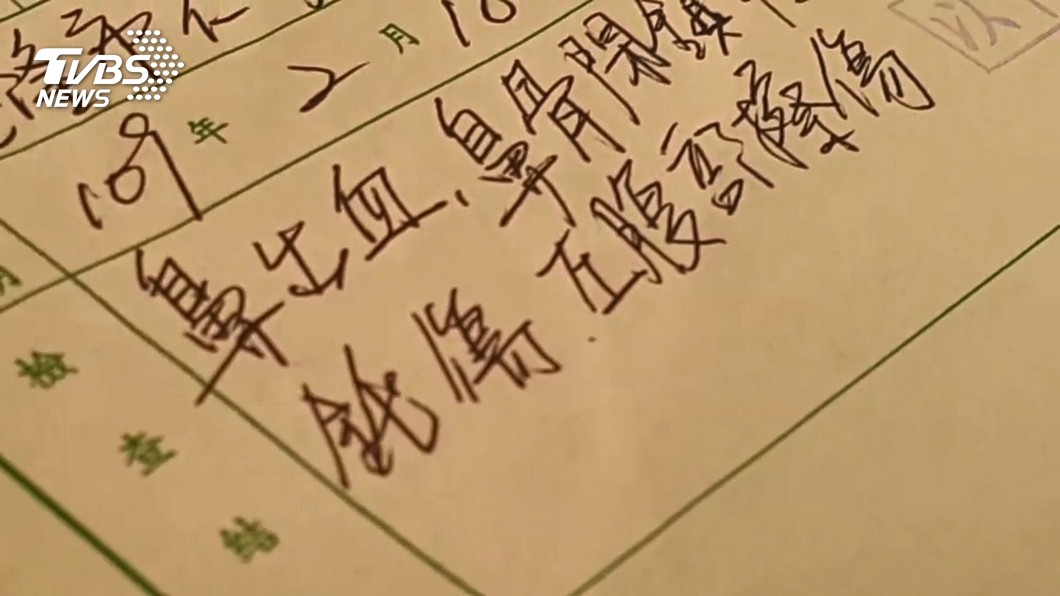 TVBS
NEWS
109年2月10
鼻出血、鼻骨閉鎖性
鈍傷．左腹部擦傷
月
檢查結
以